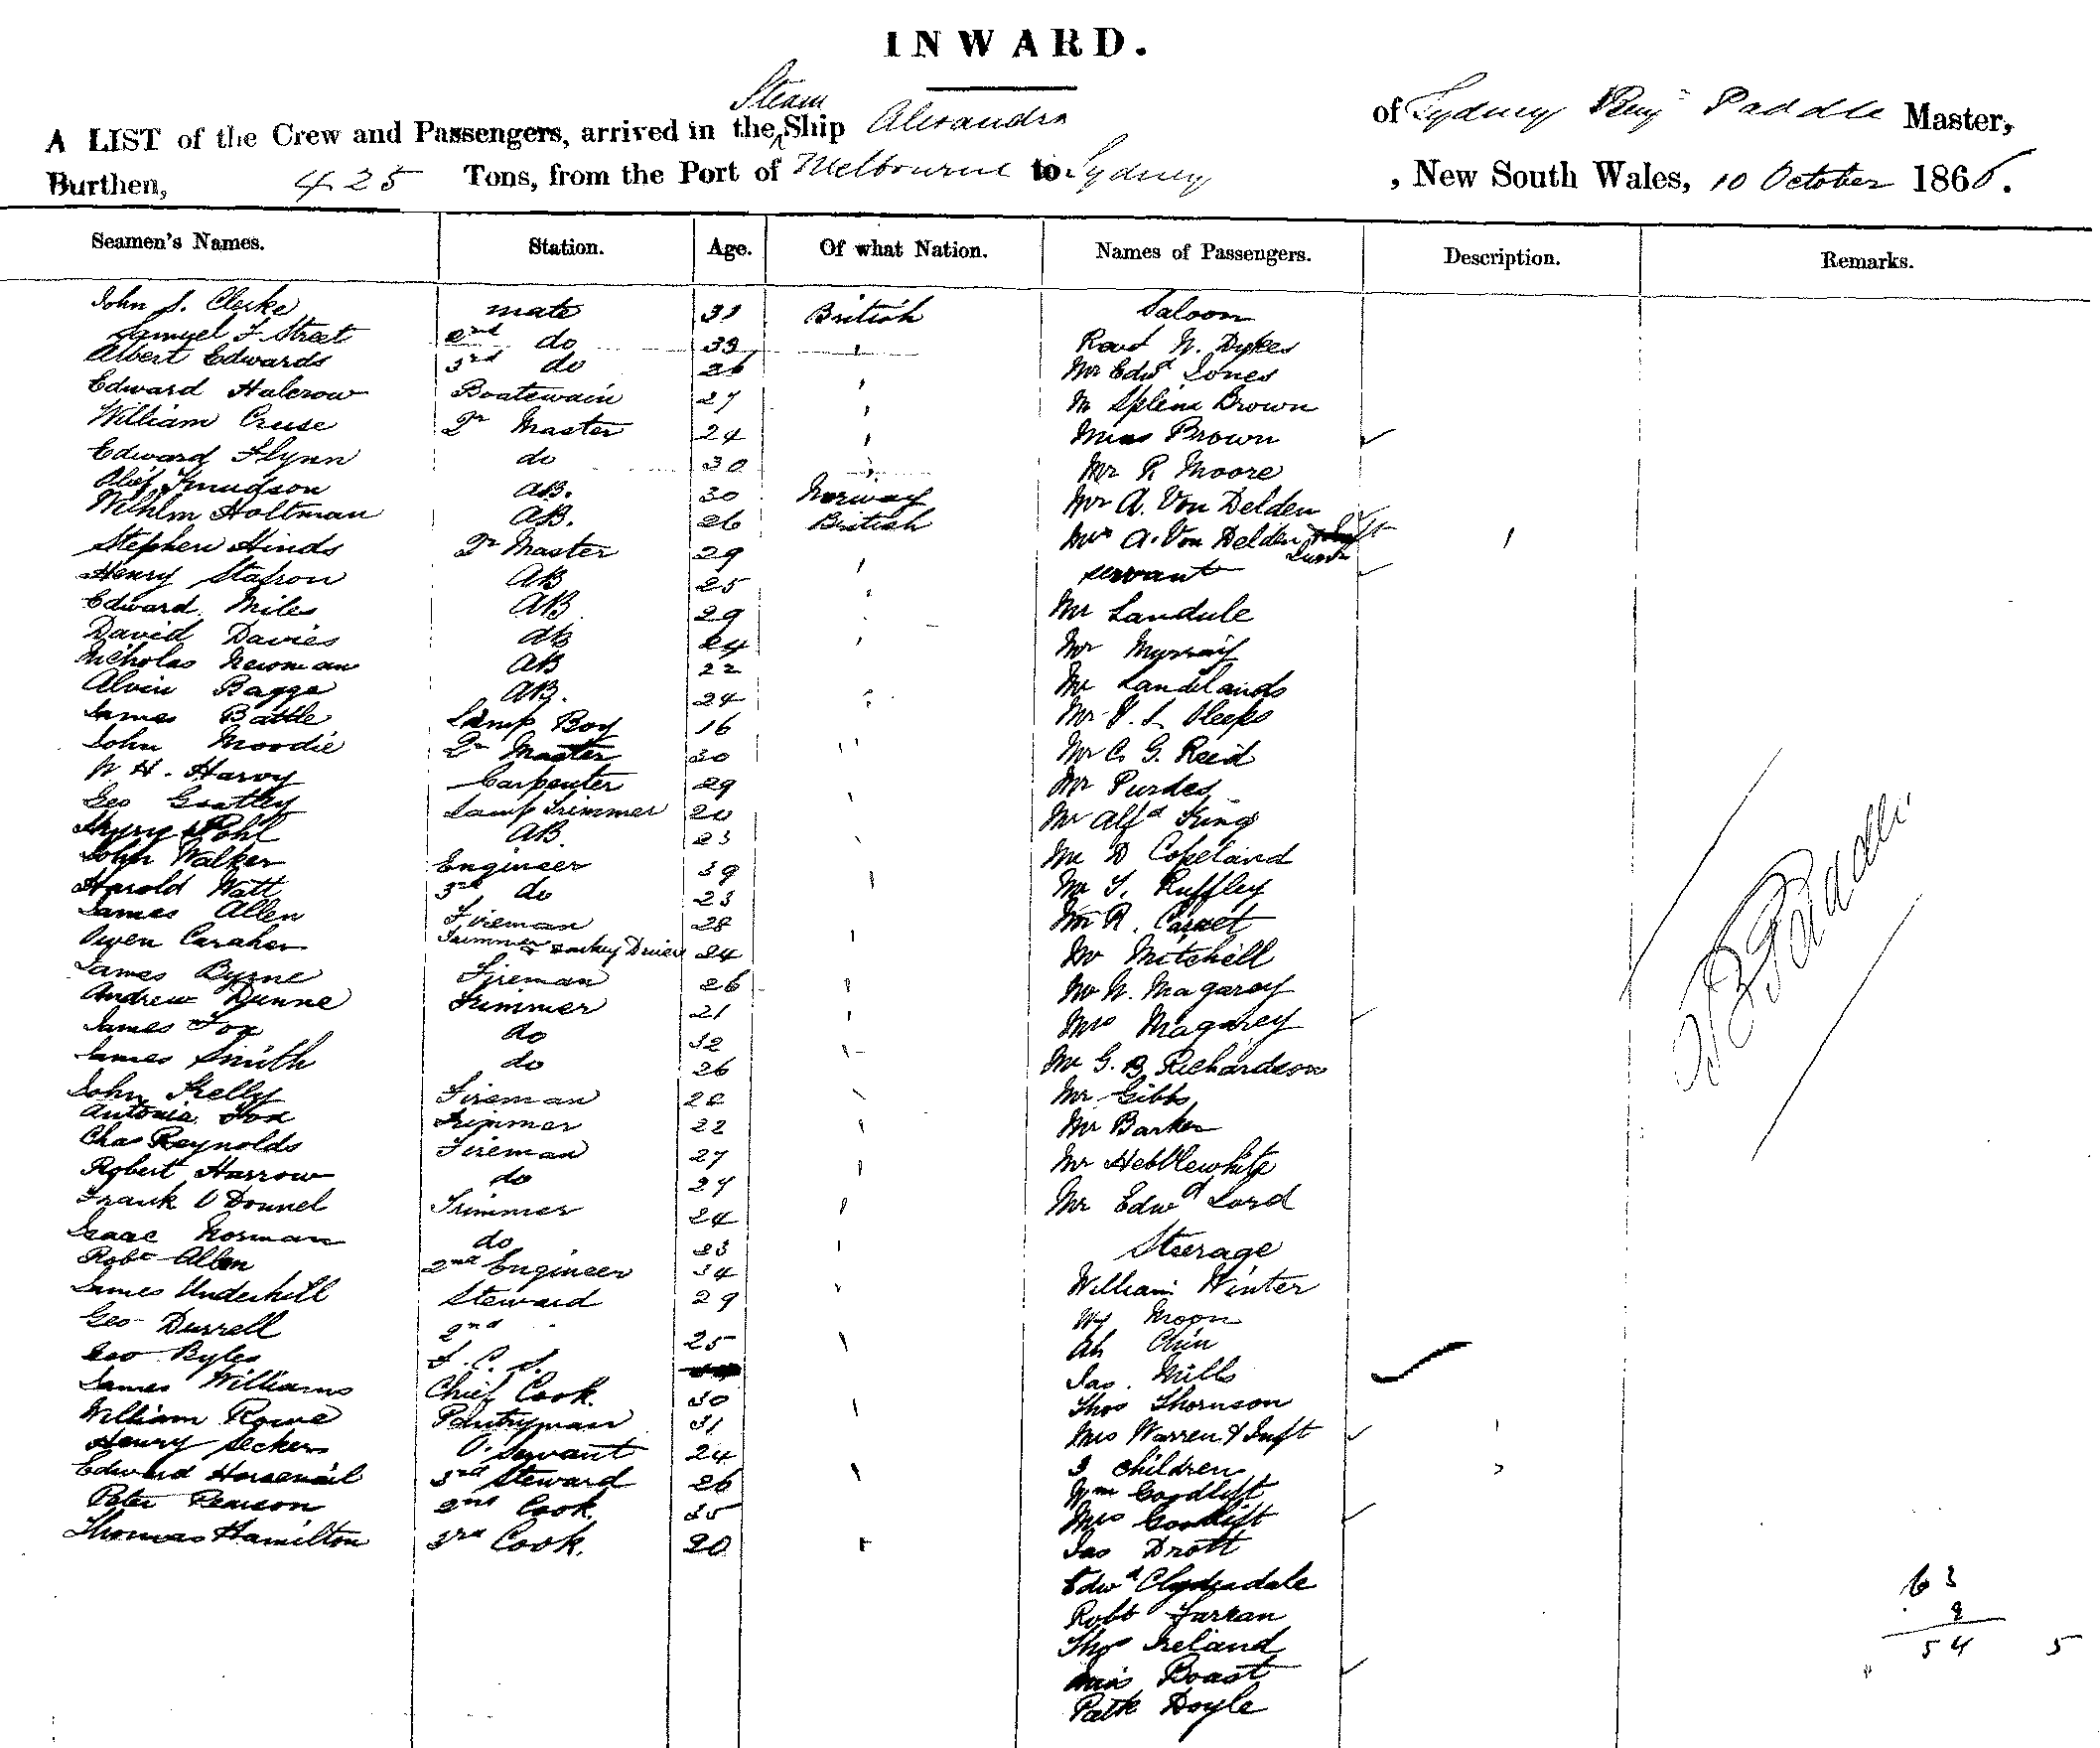 INWARD.
A LIST of the Crew and Passengers, arrived in the Steam Ship Alexandra of Sydney Benj Paddle Master,
Burthen, 425 Tons, from the Port of Melbourne to Sydney, New South Wales, 10 October 1866.
Seamen's Names. Station. Age. Of what Nation. Names of Passengers. Description. Remarks.
John S. Clerke mate 31 British Saloon
Samuel F Street 2nd do 39 Revd W. Dykes
Albert Edwards 3rd do 26 Mr Edwd Jones
Edward Halcrow Boatswain 27 Brown
William Cruse Qr Master 24 Miss Brown
Edward Flynn do 30 Mr R Moore
Olif Knudson AB. 30 Norway Mr A. Von Delden
Wilhlm Holtman AB. 26 British Mrs A. Von Delden
Stephen Hinds Qr Master 29 servant
Henry AB 25 Mr Landule
Edward Miles AB 29 Mr Murray
David Davies AB 24 Mr Landelands
Nicholas Newman AB 22 Mr
Alvin Bagge AB. 24 Mr C. G. Reed
James Battle Lamp Boy 16 Mr Purdes
John Moodie Qr Master 30 Mr Alfd King
W. H. Harvy Carpenter 29 Mr D Copeland
Geo Lamp Trimmer 20 Mr T. Ruffley
Pohl AB. 23 Mr R.
John Walker Engineer 39 Mr Mitchell
Harold Watt 3rd do 23 Mr W. Magarey
James Allen Fireman 28 Mrs Magarey
Owen Caraher Trimmer & Donkey Driver 24 Mr G. B. Richardson
James Byrne Fireman 26 Mr Gibbs
Andrew Dunne Trimmer 21 Mr Barker
James Fox do 32 Mr Hebblewhite
James Smith do 26 Mr Edwd Lord
John Kelly Fireman Steerage
Antonia Fox Trimmer 22 William Winter
Chas Reynolds Fireman 27 Moon
Robert Harrow do 27 Ah Chin
Frank O Donnel Trimmer 24 Jas. Mills
Isaac Norman do 23 Thos Thornson
Robt Allen 2nd Engineer 34 Mrs Warren & Inft
James Underhill Steward 29 3 children
Geo Durrell 2nd 25 Wm Goodlift
Geo Byles S. C. S. Mrs Goodlift
James Williams Chief Cook. 30 Jas Drott
William Rowe Pantryman 31 Edwd Clydesdale
Henry Seckers O. Servant 24 Robt Farran
Edward Horsenail 3rd Steward 26 Thos Ireland
Peter 2nd Cook. 35 Miss Boast
Thomas Hamilton 3rd Cook. 20 Patk Doyle
B Paddle
63
9
54 5